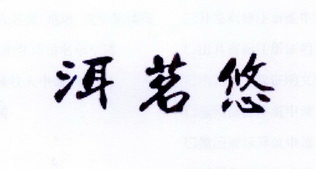 洱茗悠